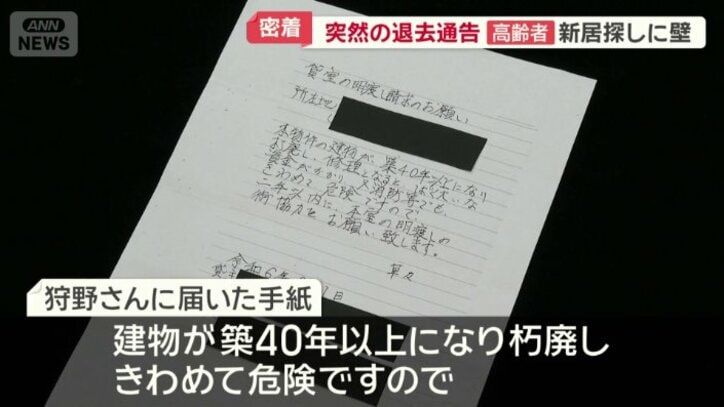 ANN
NEWS
密着 突然の退去通告 高齢者 新居探しに壁
貸室の明渡し請求のお願い
所在地
本物件の建物が、築40年以上になり
朽廃し、修理となると ばく大な
資金がかかり、又消防署でも、
きわめて危険ですので
二年以内に、本室の明渡しの
御協力をお願い致します。
草々
令和6年
日
狩野さんに届いた手紙
建物が築40年以上になり朽廃し
きわめて危険ですので